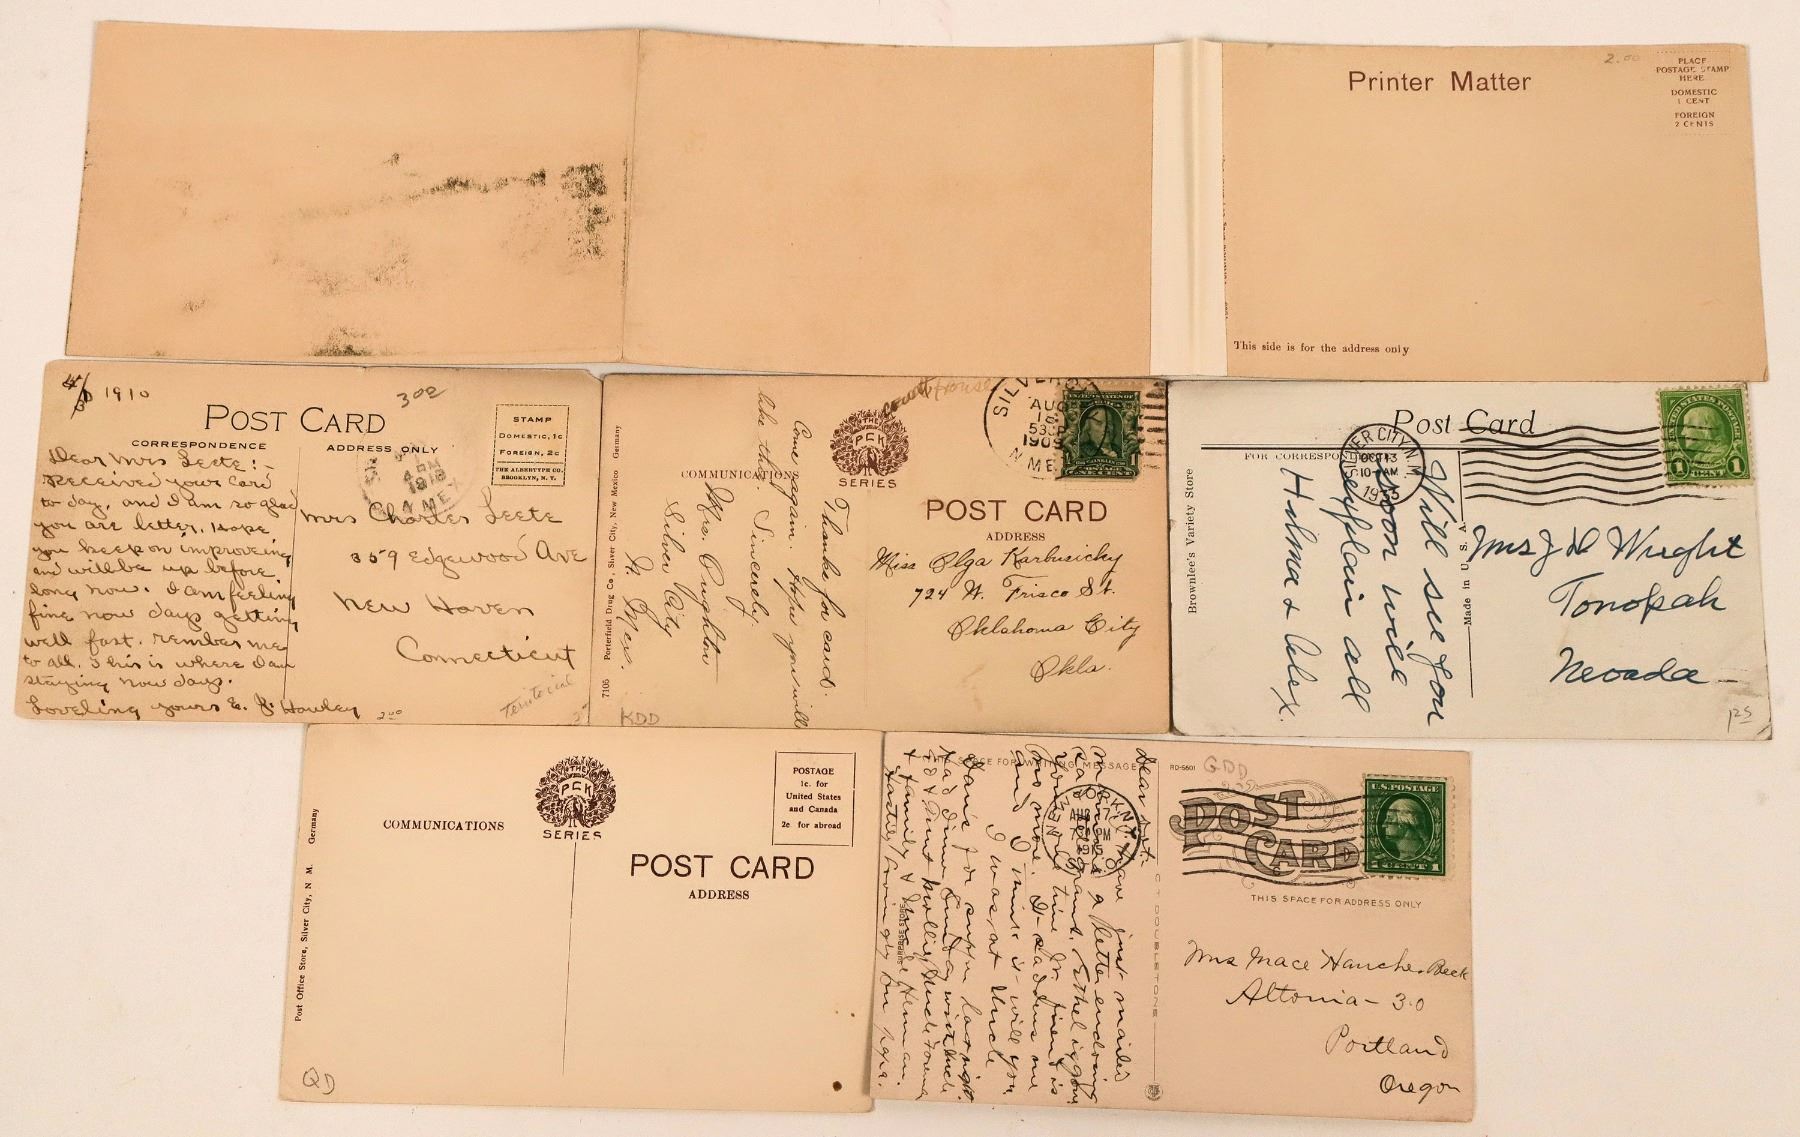 2.00
Printer Matter
PLACE
POSTAGE STAMP
HERE
DOMESTIC
1 CENT
FOREIGN
2 CENTS
This side is for the address only
1910
302
POST CARD
CORRESPONDENCE
ADDRESS ONLY
STAMP
DOMESTIC, 1c
FOREIGN, 2c
THE ALBERTYPE CO.
BROOKLYN, N.Y.
Dear Mrs Leete:-
Received your Card
to day, and I am so glad
you are better, Hope
you keep on improveing
and will be up before
long now. I am feeling
fine now days getting
well fast. rember me
to all. This is where I am
staying now days.
Loveling yours E. J. Hawley
Mrs Charles Leete
359 Edgewood Ave
New Haven
Connecticut
Territorial
2.00
7105 Porterfield Drug Co., Silver City, New Mexico Germany
KDD
COMMUNICATIONS
THE
PCK
SERIES
Court House
SILVER
AUG
1909
N MEX
POST CARD
ADDRESS
Thanks for card.
Come again. Hope you will
like this. Sincerely,
Mrs. Oughton
Silver City
N. Mex.
Miss Olga Karbusicky
724 W. Frisco St.
Oklahoma City
Okla.
Brownlee's Variety Store
Post Card
FOR CORRESPONDENCE
Made in U. S. A.
SILVER CITY, N.M.
OCT 13
10 AM
1933
UNITED STATES POSTAGE
1 CENT 1
Will see you
soon will
explain all
Hilma & Alex.
Mrs J D Wright
Tonopah
Nevada
Post Office Store, Silver City, N. M. Germany
COMMUNICATIONS
THE
PCK
SERIES
POSTAGE
1c. for
United States
and Canada
2c. for abroad
POST CARD
ADDRESS
QD
THIS SPACE FOR WRITING MESSAGES
RD-5601
GDD
POST
CARD
U.S. POSTAGE
1 CENT 1
THIS SPACE FOR ADDRESS ONLY
C T DOUBLETONE
SURPRISE STORE
AUG
PM
1915
Dear
have just mailed
a letter enclosing
Ethel is gone
no more. It saddens me
and I miss it - will you
I was at Uncle
Dan's for supper last night.
Had dinner Sunday with Uncle
& family &
Mrs Mace
Altonia - 30
Portland
Oregon